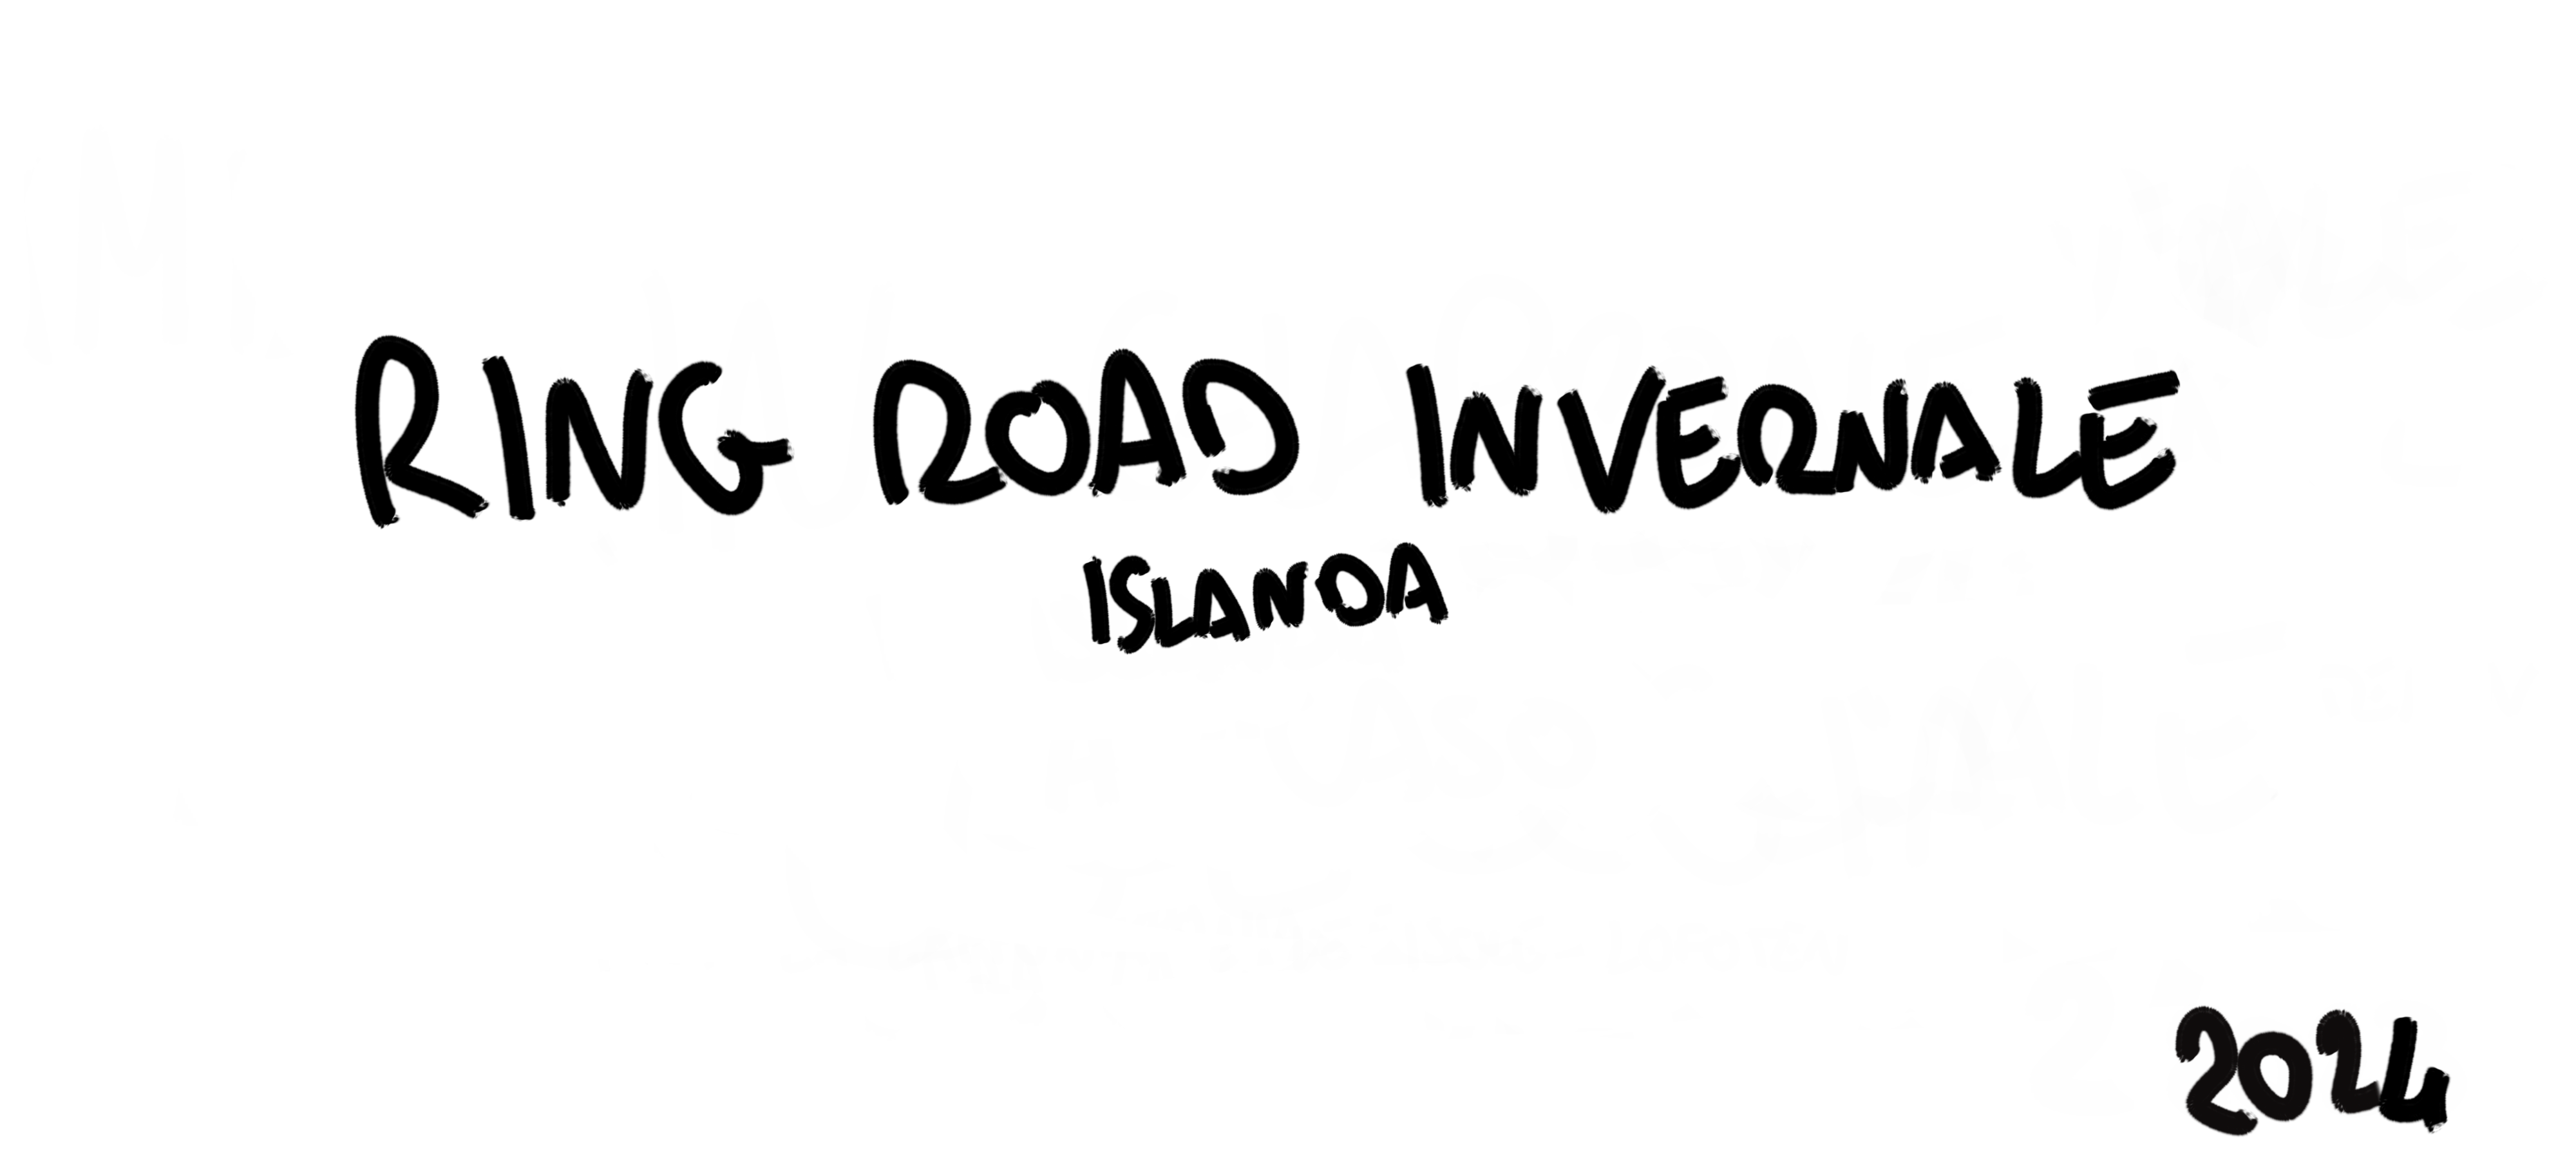 RING ROAD INVERNALE
ISLANDA
2024